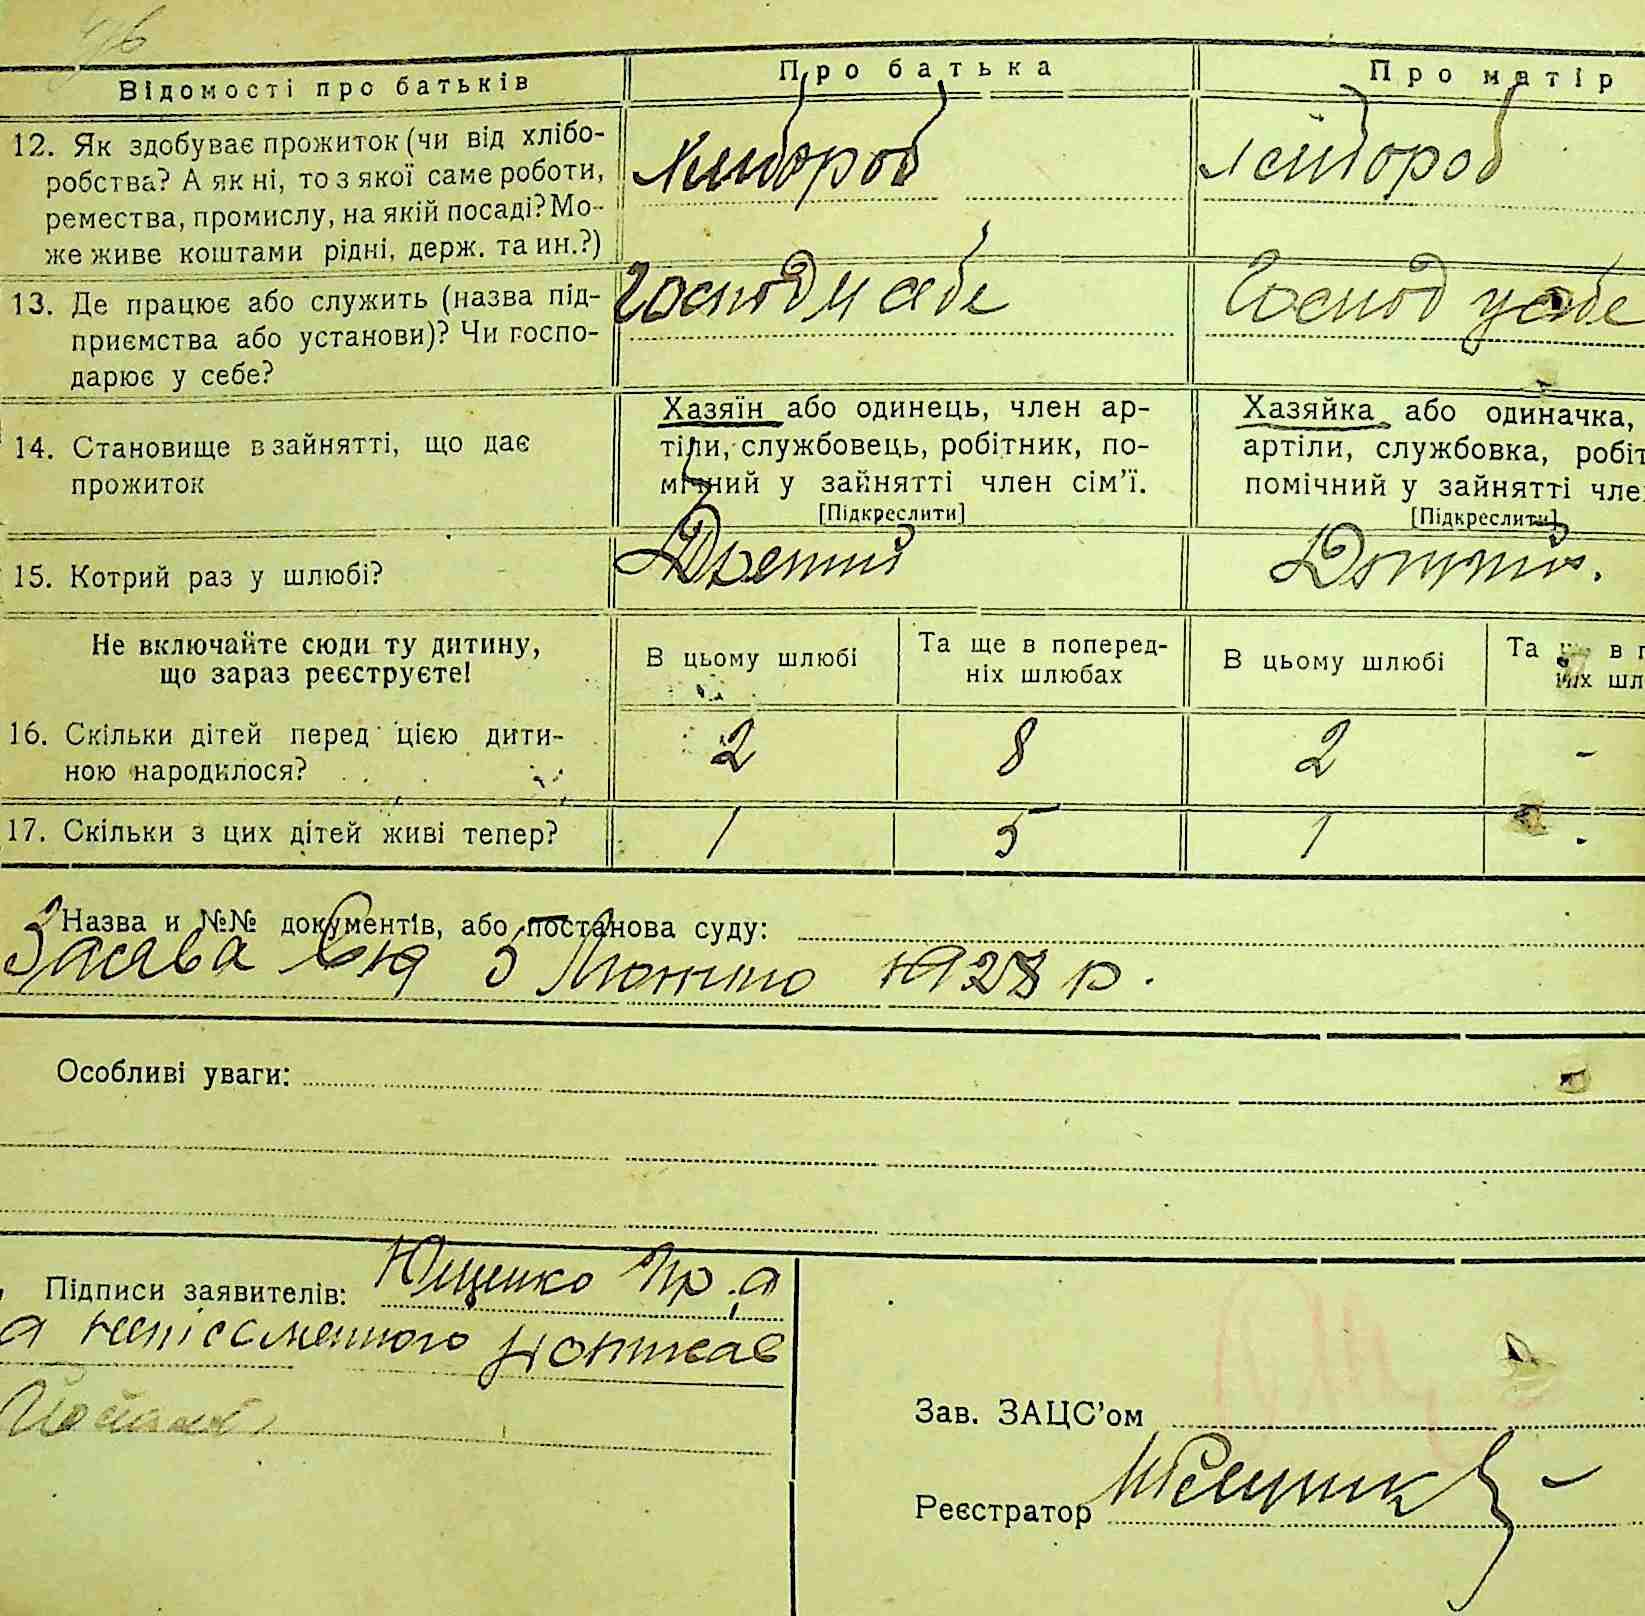 Відомості про батьків
Про батька
Про матір
12. Як здобуває прожиток (чи від хлібо-
робства? А як ні, то з якої саме роботи,
ремества, промислу, на якій посаді? Мо-
же живе коштами рідні, держ. та ин.?)
Хлибороб
Хлибороб
13. Де працює або служить (назва під-
приємства або установи)? Чи госпо-
дарює у себе?
Господ у себе
Господ у себе
14. Становище в зайнятті, що дає
прожиток
Хазяїн або одинець, член ар-
тіли, службовець, робітник, по-
мічний у зайнятті член сім'ї.
[Підкреслити]
Хазяйка або одиначка,
артіли, службовка, робіт
помічний у зайнятті чле
[Підкреслити]
15. Котрий раз у шлюбі?
Не включайте сюди ту дитину,
що зараз реєструєте!
В цьому шлюбі
Та ще в поперед-
ніх шлюбах
В цьому шлюбі
Та ще в п
ніх шл
16. Скільки дітей перед цією дити-
ною народилося?
2
8
2
-
17. Скільки з цих дітей живі тепер?
1
5
1
-
Назва и №№ документів, або постанова суду:
Заява від 5 1928 р.
Особливі уваги:
Підписи заявителів: Ющенко
а неписменного
Зав. ЗАЦС'ом
Реєстратор